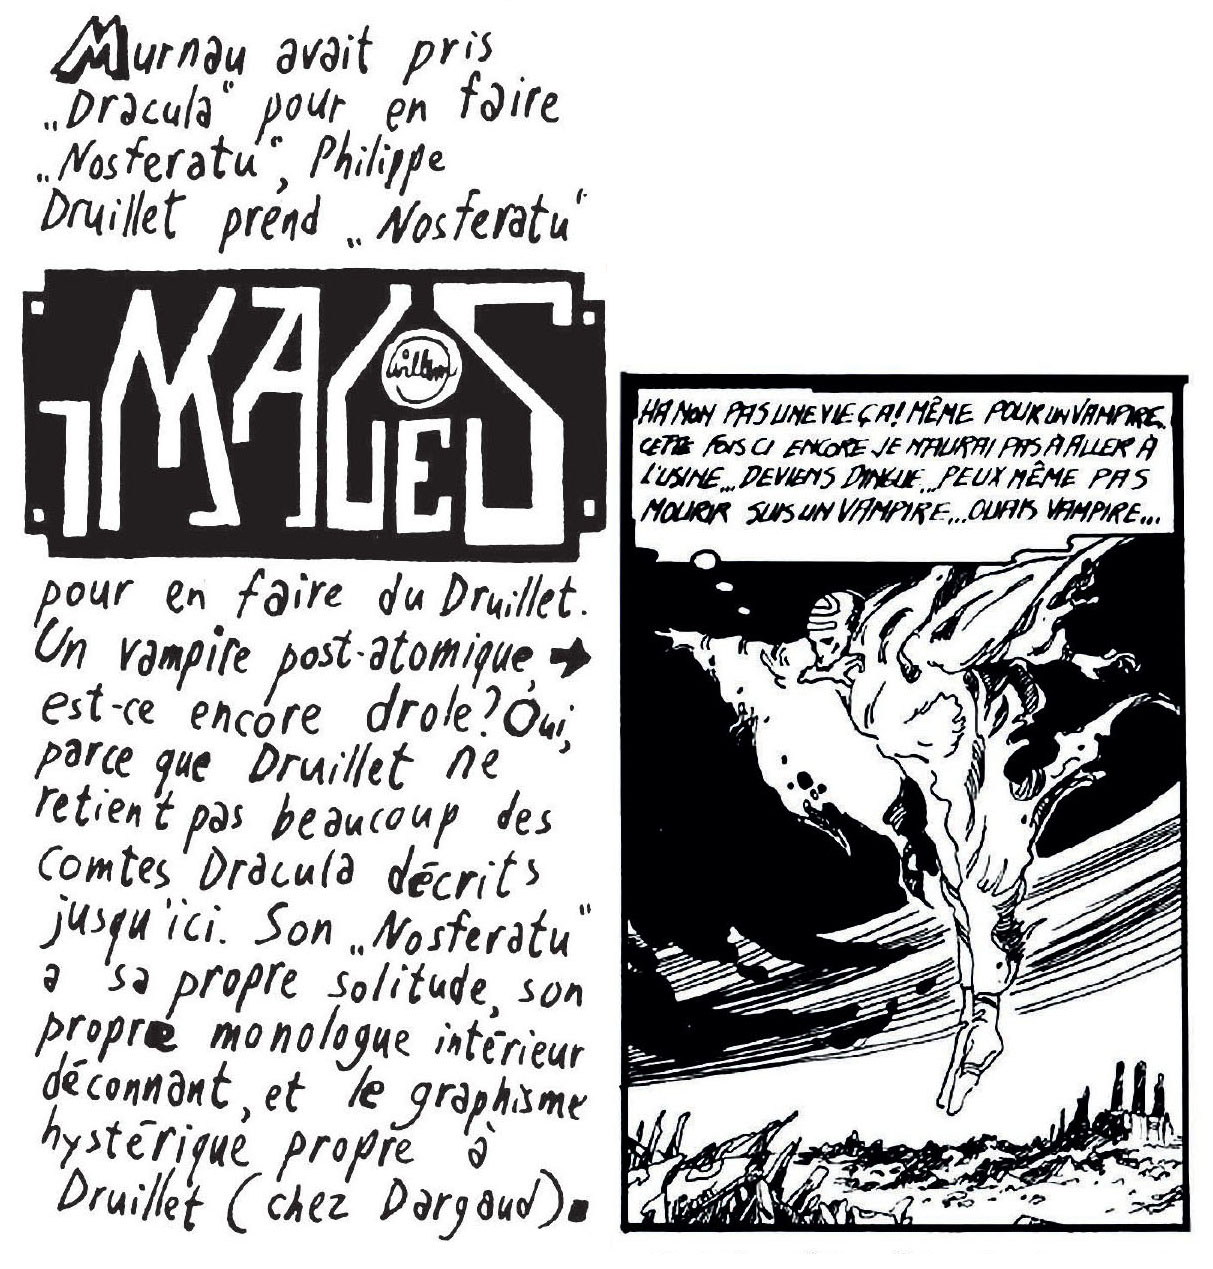 Murnau avait pris
„Dracula“ pour en faire
„Nosferatu“, Philippe
Druillet prend „Nosferatu“
iMAGES
Willem
pour en faire du Druillet.
Un vampire post-atomique,
est-ce encore drole? Oui,
parce que Druillet ne
retient pas beaucoup des
comtes Dracula décrits
jusqu'ici. Son „Nosferatu“
a sa propre solitude, son
propre monologue intérieur
déconnant, et le graphisme
hystérique propre à
Druillet (chez Dargaud).
HA NON PAS UNE VIE ÇA! MÊME POUR UN VAMPIRE.
CETTE FOIS CI ENCORE JE N'AURAI PAS À ALLER À
L'USINE... DEVIENS DINGUE... PEUX MÊME PAS
MOURIR SUIS UN VAMPIRE... OUAIS VAMPIRE...